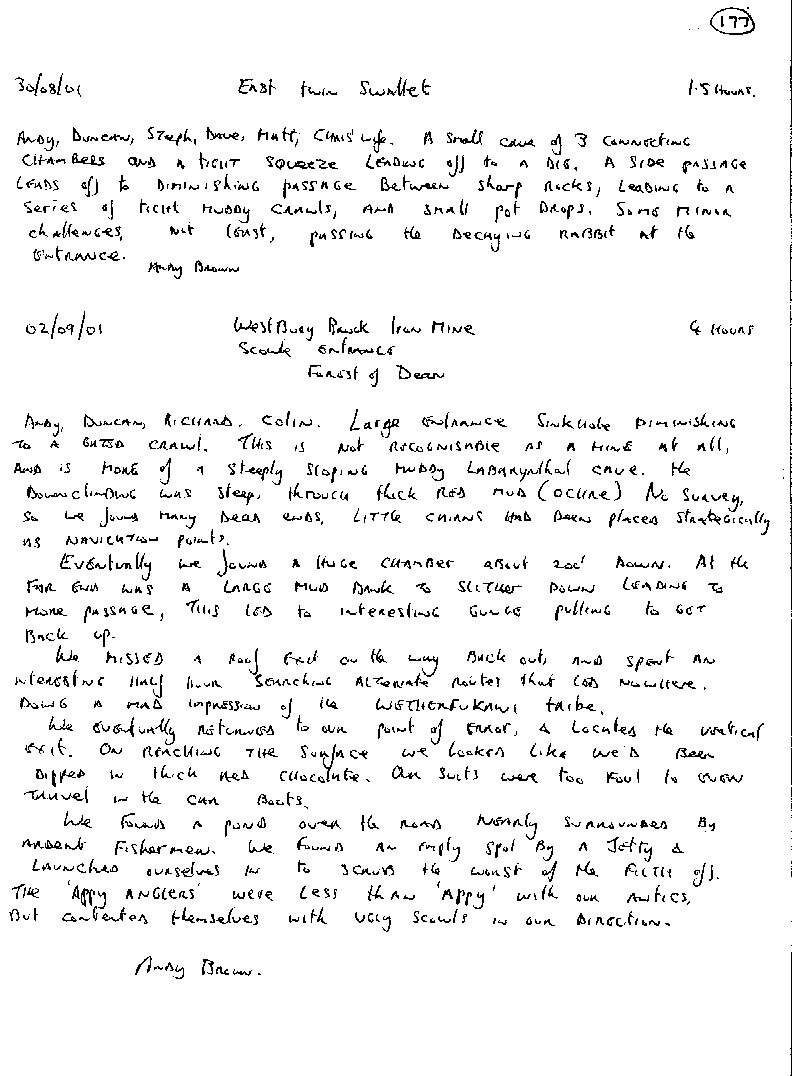 177
30/08/01 East twin Swallet 1.5 Hours.
Andy, Duncan, Steph, Dave, Matt, Chris' wife. A small cave of 3 connecting
chambers and a tight squeeze leading off to a dig. A side passage
leads off to diminishing passage between sharp rocks, leading to a
series of tight muddy crawls, and small pot drops. Some minor
challenges, not least, passing the decaying rabbit at the
entrance.
Andy Brown
02/09/01 Westbury Brook Iron Mine 4 Hours
Scowle entrance
Forest of Dean
Andy, Duncan, Richard, Colin. Large entrance sinkhole diminishing
to a gated crawl. This is not recognisable as a mine at all,
and is more of a steeply sloping muddy labarynthal cave. The
downclimbing was steep, through thick red mud (ochre) No survey,
so we found many dead ends, little cairns had been placed strategically
as navigation points.
Eventually we found a huge chamber about 200' down. At the
far end was a large mud bank to slither down leading to
more passage, this led to interesting gunge pulling to get
back up.
We missed a roof exit on the way back out, and spent an
interesting half hour searching alternate routes that led nowhere.
Doing a mad impression of the WETHERFUKAWI tribe.
We eventually returned to our point of error, & located the vertical
exit. On reaching the surface we looked like we'd been
dipped in thick red chocolate. Our suits were too foul to even
travel in the car boots.
We found a pond over the road nearly surrounded by
ardent fishermen. We found an empty spot by a jetty &
launched ourselves in to scrub the worst of the filth off.
The 'Appy Anglers' were less than 'Appy' with our antics,
but contented themselves with ugly scowls in our direction.
Andy Brown.